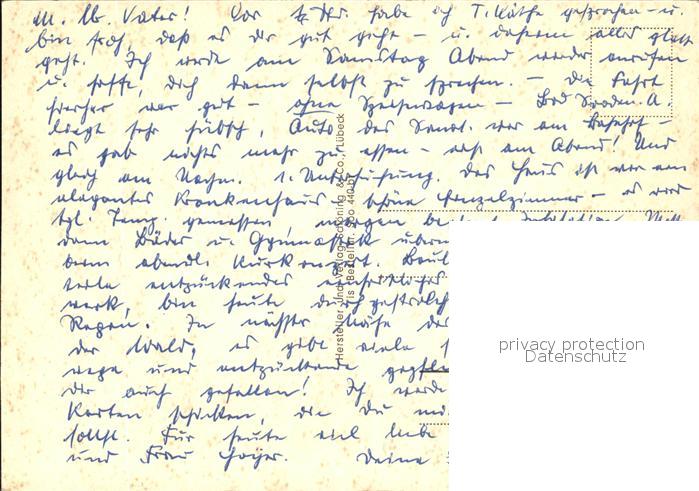 M. lb. Vater! Vor habe ich T. Käthe gesprochen - u.
bin froh, daß es dir gut geht - u. daheim alles glatt
geht. Ich werde am Samstag Abend wieder anrufen
u. hoffe, dich dann selbst zu sprechen. - Die Fahrt
hierher war gut - ohne Speisewagen - Bad Sooden-A.
liegt sehr hübsch, Auto des Sanat. war am Bahnhof -
es gab nichts mehr zu essen - erst am Abend! Und
gleich am Nachm. 1. Untersuchung. Das Haus ist wie ein
elegantes Krankenhaus - schöne Einzelzimmer - es wird
tgl. Temp. gemessen, morgen
dann Bäder u. Gymnastik
beim abendl. Kurkonzert.
teile entzückendes
werk, bin heute durchgestreift
Regen. In nächster Nähe
der Wald, es gibt viele
wege und entzückende
dir auch gefallen! Ich werde
Karten schicken, die Du
sollst. Für heute viel liebe
und Frau Hoyer. Deine
Hersteller und Verlag Schöning & Co., Lübeck
Bestellnr.
privacy protection
Datenschutz